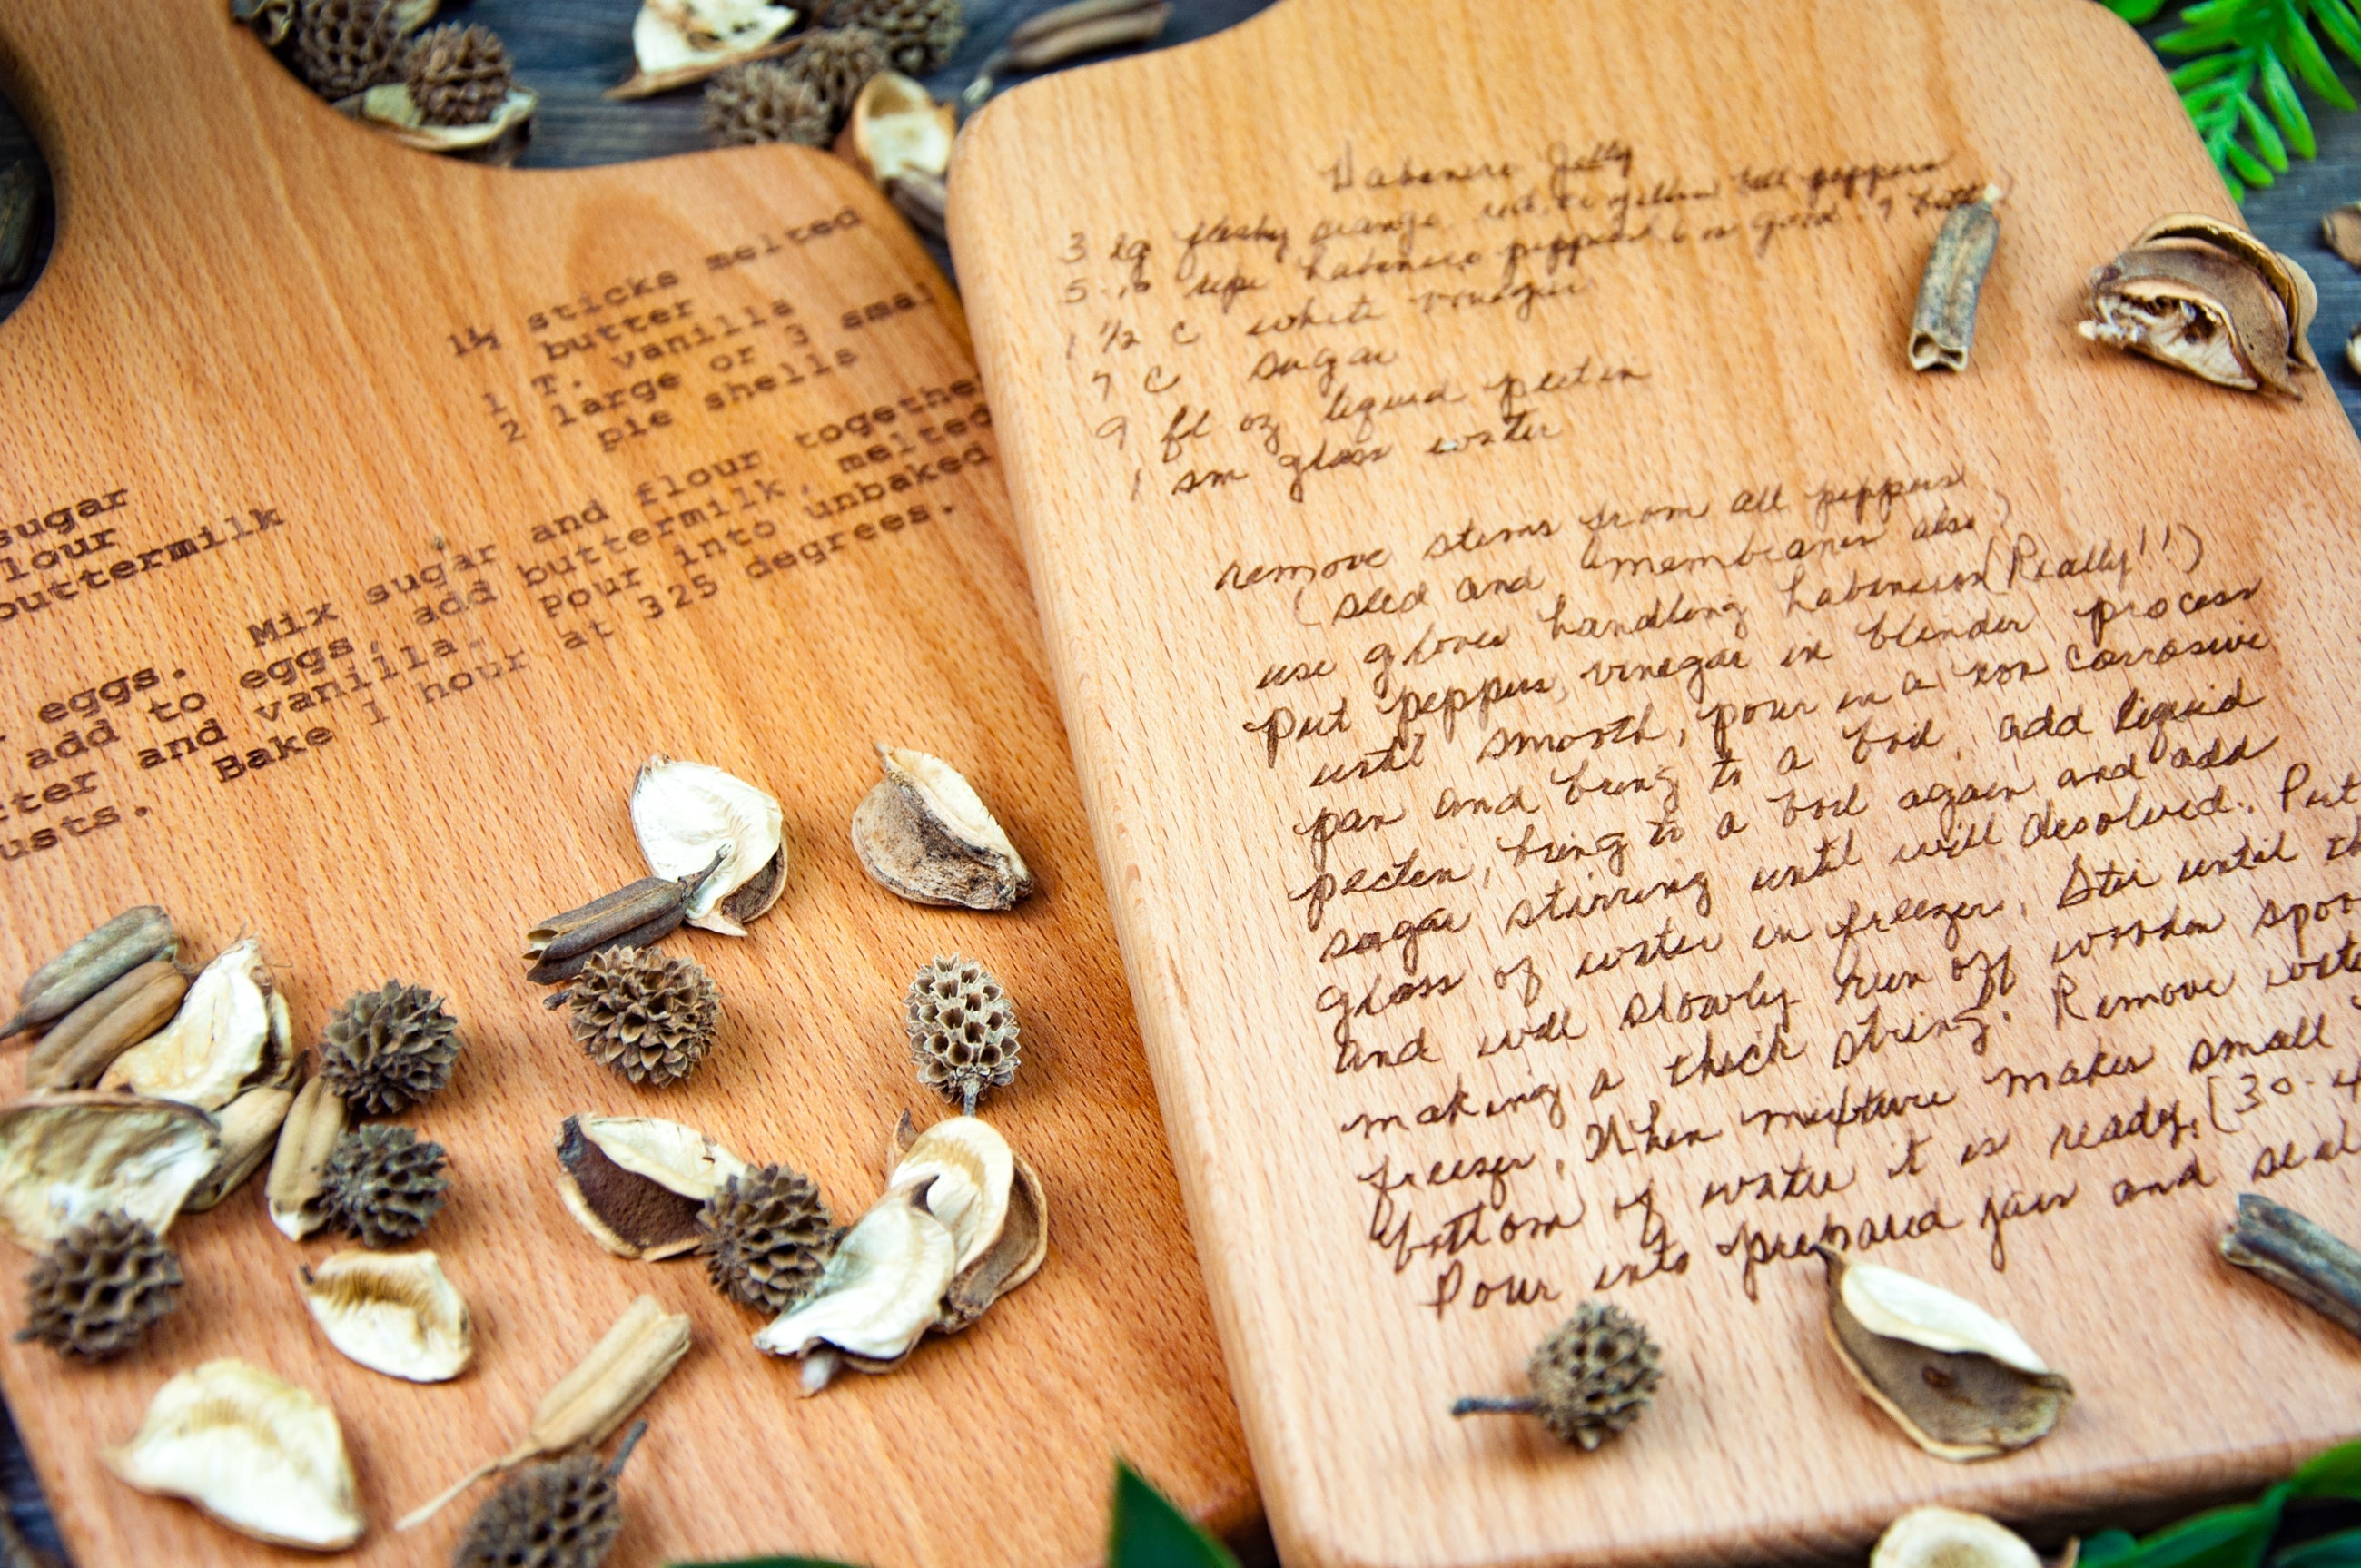 1½ sticks melted
butter
1 T. vanilla
2 large or 3 smal
pie shells
sugar
lour
buttermilk
eggs. Mix sugar and flour togethe
add to eggs, add buttermilk, melted
tter and vanilla. Pour into unbaked
usts. Bake 1 hour at 325 degrees.
Habenero Jelly
3 lg fleshy orange, red, or yellow bell peppers
5-10 ripe habenero peppers 6 is good 9
1 1/2 c white vinegar
7 c sugar
9 fl oz liquid pectin
1 sm glass water
remove stems from all peppers
(seed and membranes also)
use gloves handling habeneros (Really!!)
Put peppers, vinegar in blender process
until smooth, pour in a non corrosive
pan and bring to a boil, add liquid
pectin, bring to a boil again and add
sugar stirring until will desolved. Put
glass of water in freezer. Stir until th
and will slowly run off wooden spoo
making a thick string. Remove wate
freezer, When mixture makes small
bottom of water it is ready. (30-4
Pour into prepared jars and seal